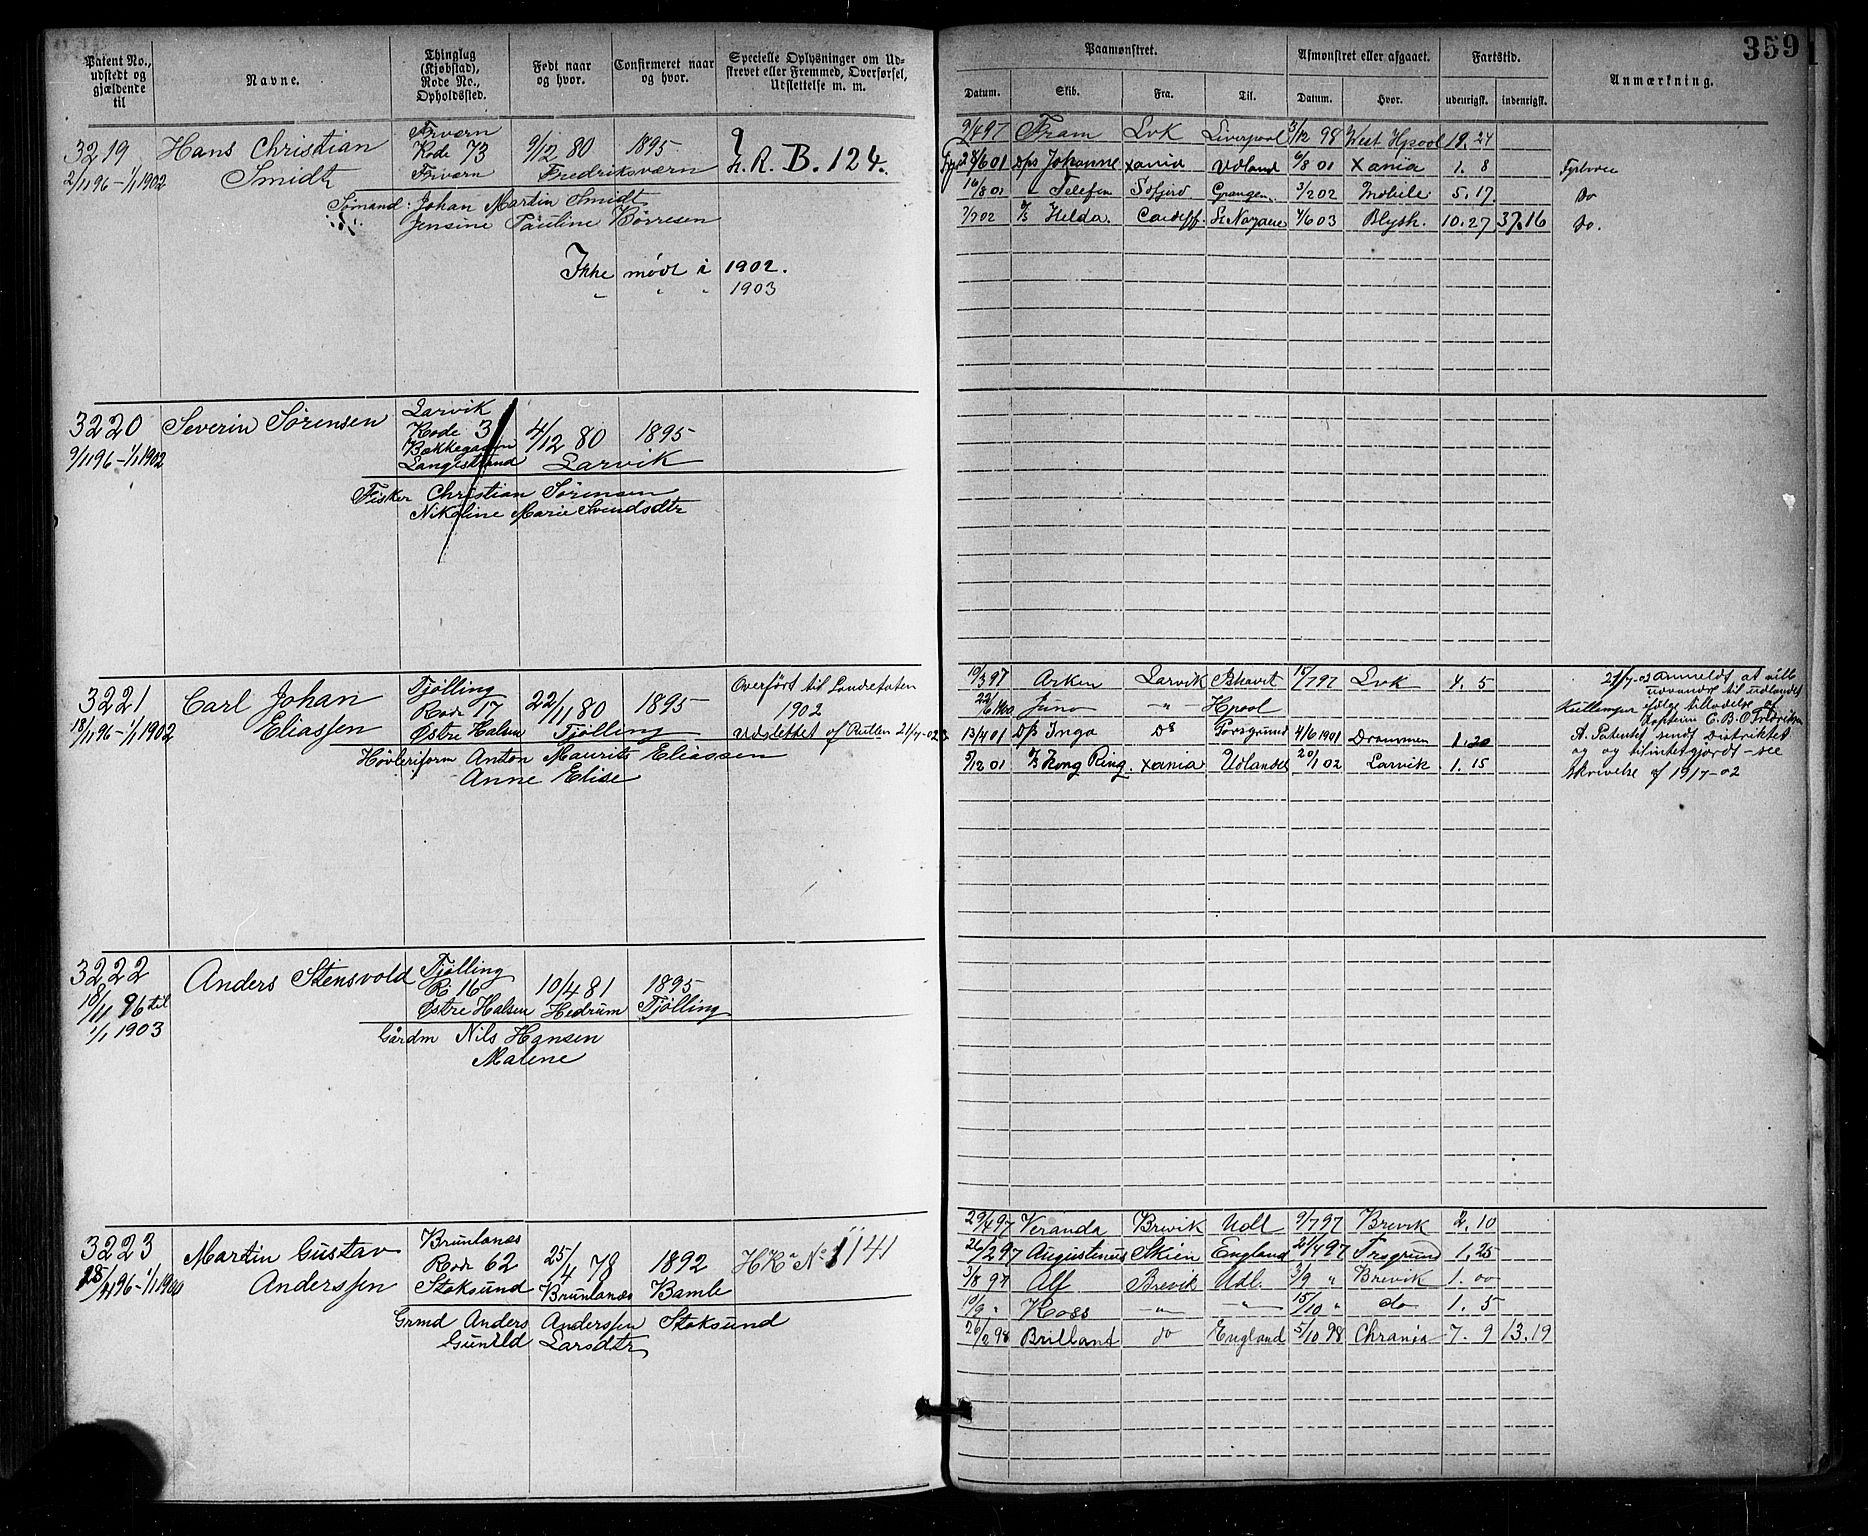 359
Patent No., udstedt og gjældende til
Navne.
Thinglag (Kjøbstad), Rode No., Opholdssted.
Født naar og hvor.
Confirmeret naar og hvor.
Specielle Oplysninger om Udstrevet eller Fremmed, Overførsel, Udslettelse m. m.
Paamønstret.
Afmønstret eller afgaaet.
Fartstid.
Anmærkning.
Datum. Skib. Fra. Til. Datum. Hvor. udenrigsk. indenrigsk.
3219 Hans Christian Smidt
2/11 96 - 1/1 1902
Frværn
Rode 73
Frværn
9/12 80 1895
Fredriksværn
R. B. 124.
Sømand: Johan Martin Smidt
Jensine Pauline Børresen
Ikke mødt i 1902.
" " " 1903
9/4 97 Fram Lvk Liverpool 3/12 98 West Hpool 19.24
28/6 01 D/s Johanne Xania Udland 6/8 01 Xania 1. 8 Fyrbøder
16/8 01 " Telefon 3/2 02 Mobile 5.17 Do
7/7 02 Helda Cardiff St Nazaire 4/6 03 Blyth. 10.27 37.16 Do.
3220 Severin Sørensen
9/11 96 - 1/1 1902
Larvik
Rode 3
Bakkegaden
Langestrand
4/12 80 1895
Larvik
Fisker Christian Sørensen
Nikoline Marie Svendsdtr
3221 Carl Johan Eliassen
18/11 96 - 1/1 1902
Tjølling
Rode 17
Østre Halsen
22/11 80 1895
Tjølling
Overført til Landrefaten
1902
Udslettet af Rullen 21/7-02
Høvleriform Anton Maurits Eliassen
Anne Elise
10/3 97 Asken Larvik 15/7 97 Lvk 4. 5
22/6 1900 Juno " Hpool
13/4 01 D/s Inga Do Porsgrund 4/6 1901 Drammen 1.20
9/12 01 Kong Ring. Xania Udlandet 20/1 02 Larvik 1. 15
21/7-02 Anmeldt at ville
udvandre til udlandet
ifølge tilladelse af
Kaptein C. B. O Fredriksen
A. Patentet sendt Distriktet
og tilintetgjordt - see
skrivelse af 19/7-02
3222 Anders Stensvold
18/11 96 til
1/1 1903
Tjølling
R. 16
Østre Halsen
10/4 81 1895
Hedrum Tjølling
Gårdm Nils Hansen
Malene
3223 Martin Gustav Anderssen
18/11 96 - 1/1 1900
Brunlanæs
Rode 62
Stoksund
25/4 78 1892
Brunlanæs Bamle
HK No 1141
Grmd Anders Anderssen Stoksund
Gunild Larsdtr
29/4 97 Veranda Brevik Udl 9/7 97 Brevik 2. 10
26/2 97 Augustinus Skien England 21/4 97 Prsgrund 1. 25
3/8 97 Alf Brevik Udl. 3/9 " Brevik 1. 00
10/9 " Koss " " 15/10 " do 1. 5
26/2 98 Brilland do England 5/10 98 Chrania 7. 9 13.19